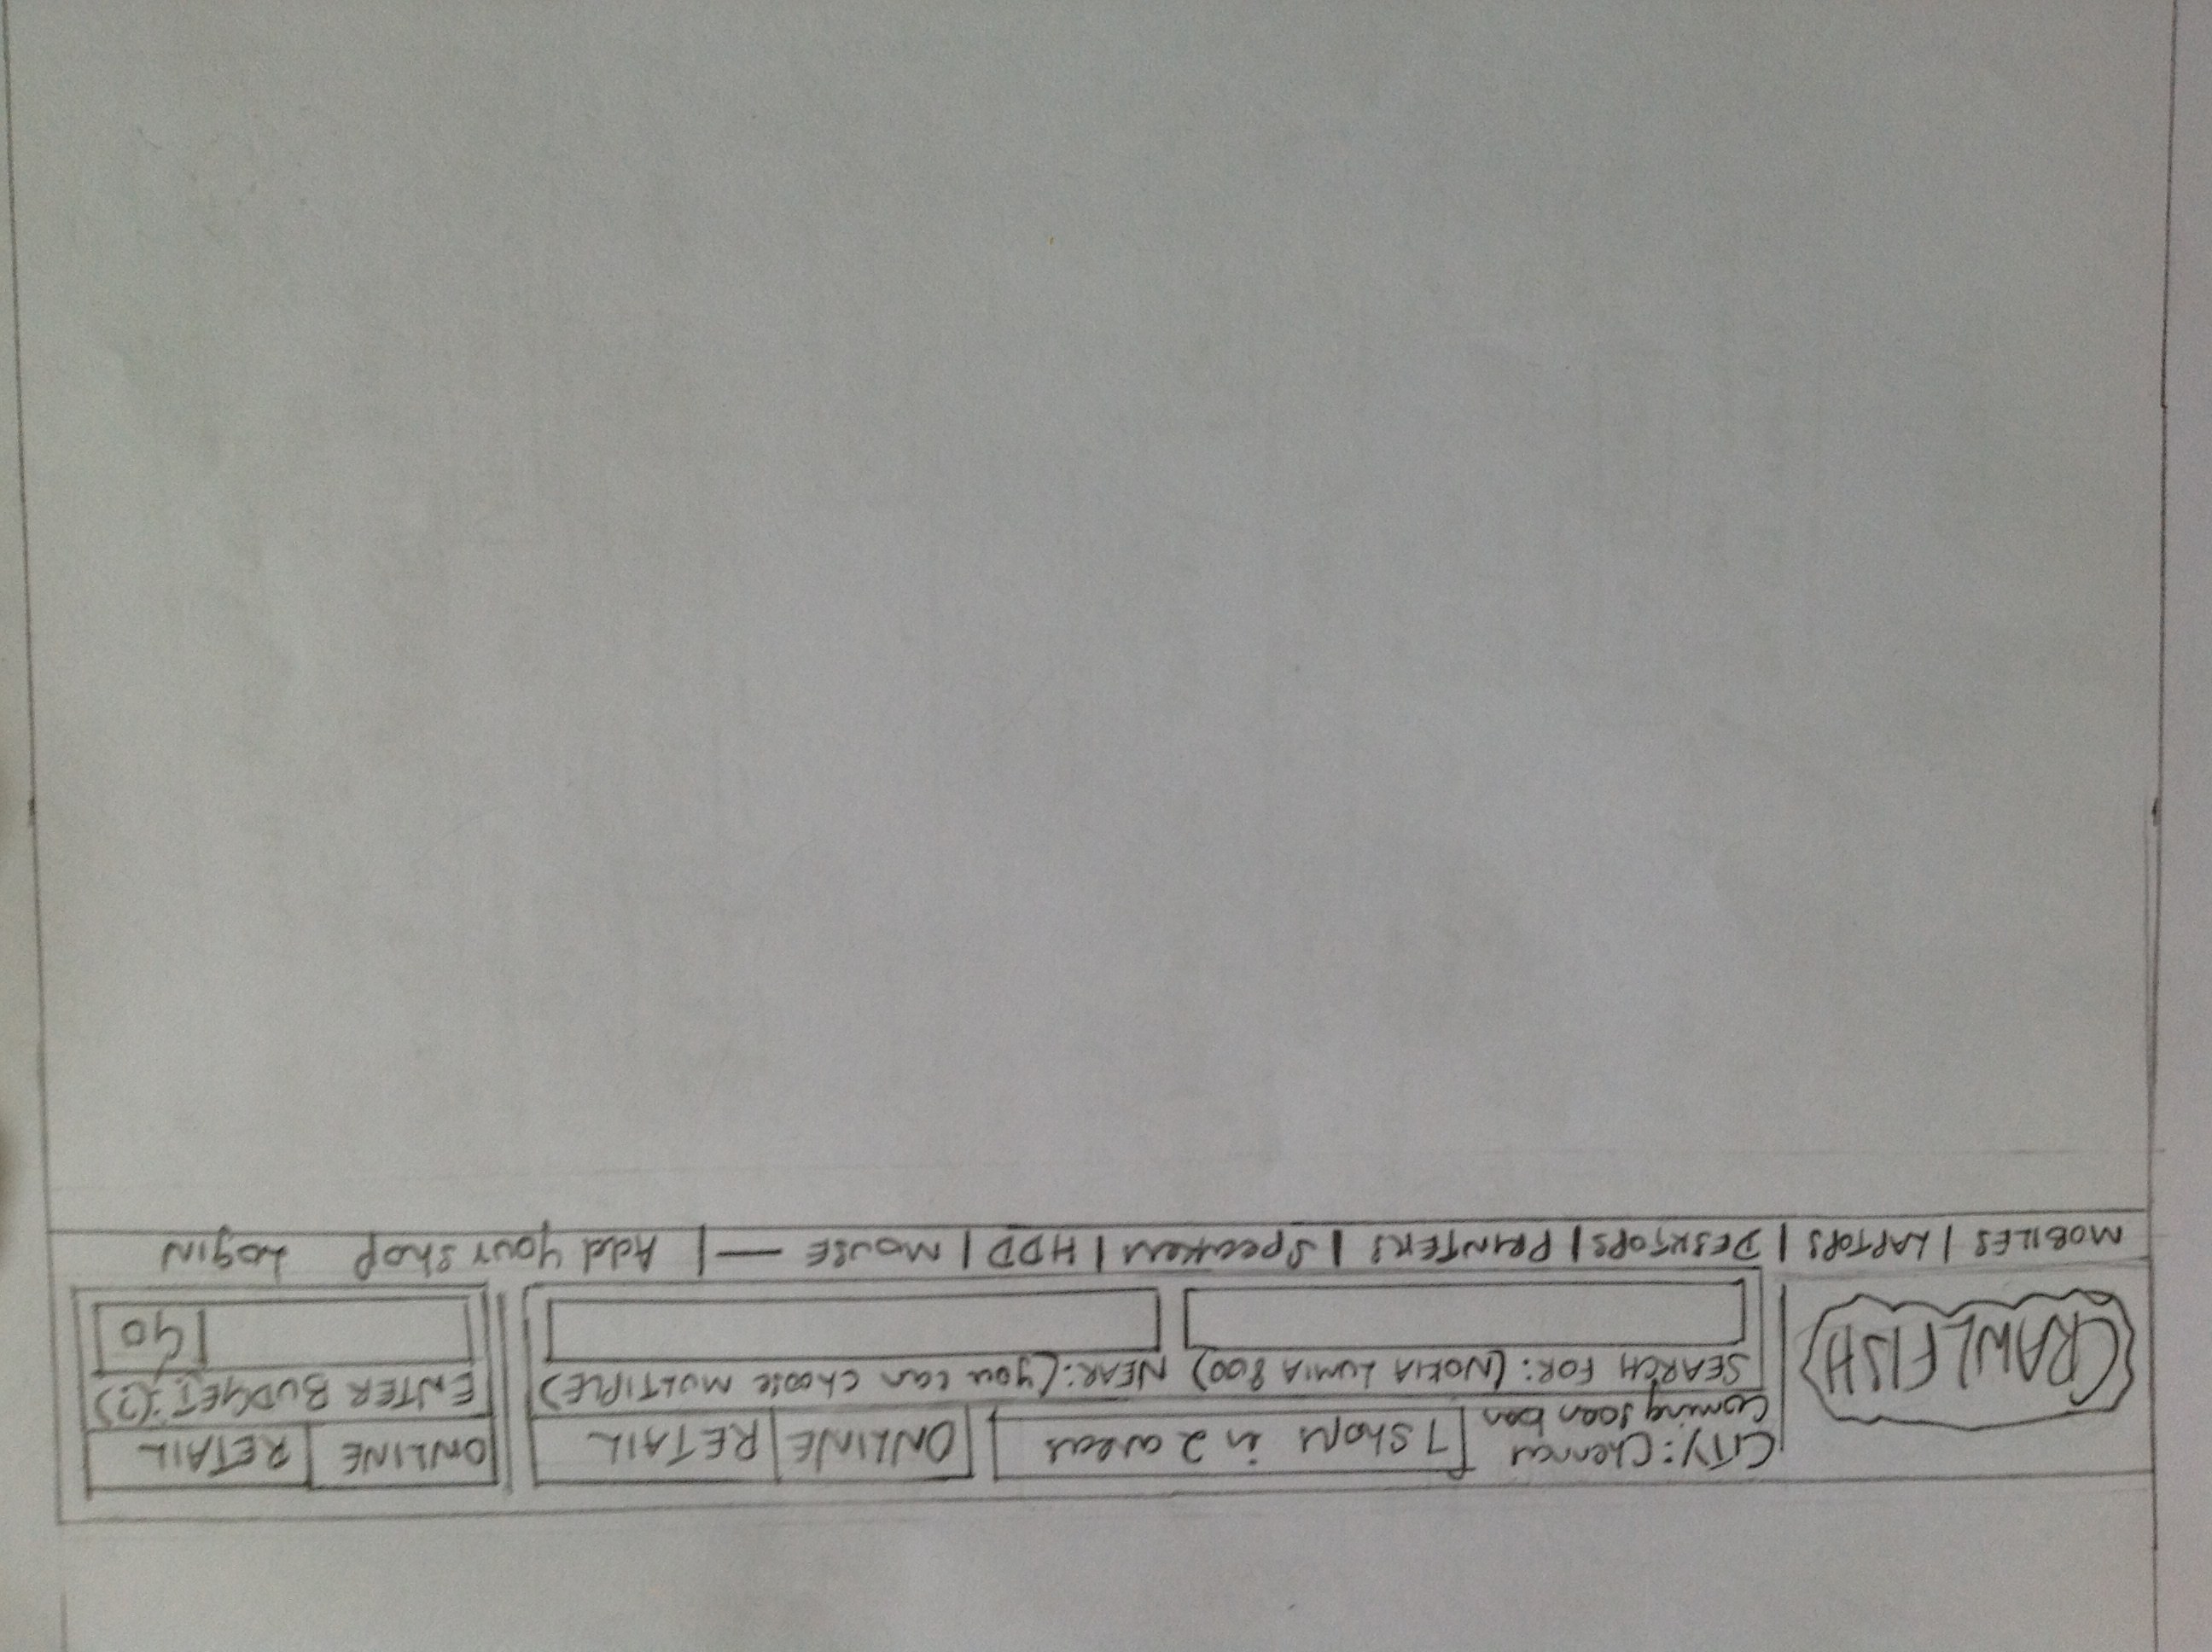 CRAWLFISH
CITY: Chennai
Coming soon ban
7 Shops in 2 areas
ONLINE | RETAIL
SEARCH FOR: (NOKIA LUMIA 800) NEAR: (you can choose MULTIPLE)
ONLINE | RETAIL
ENTER BUDGET: (?)
GO
MOBILES | LAPTOPS | DESKTOPS | PRINTERS | Speakers | HDD | MOUSE — | Add your shop LOGIN